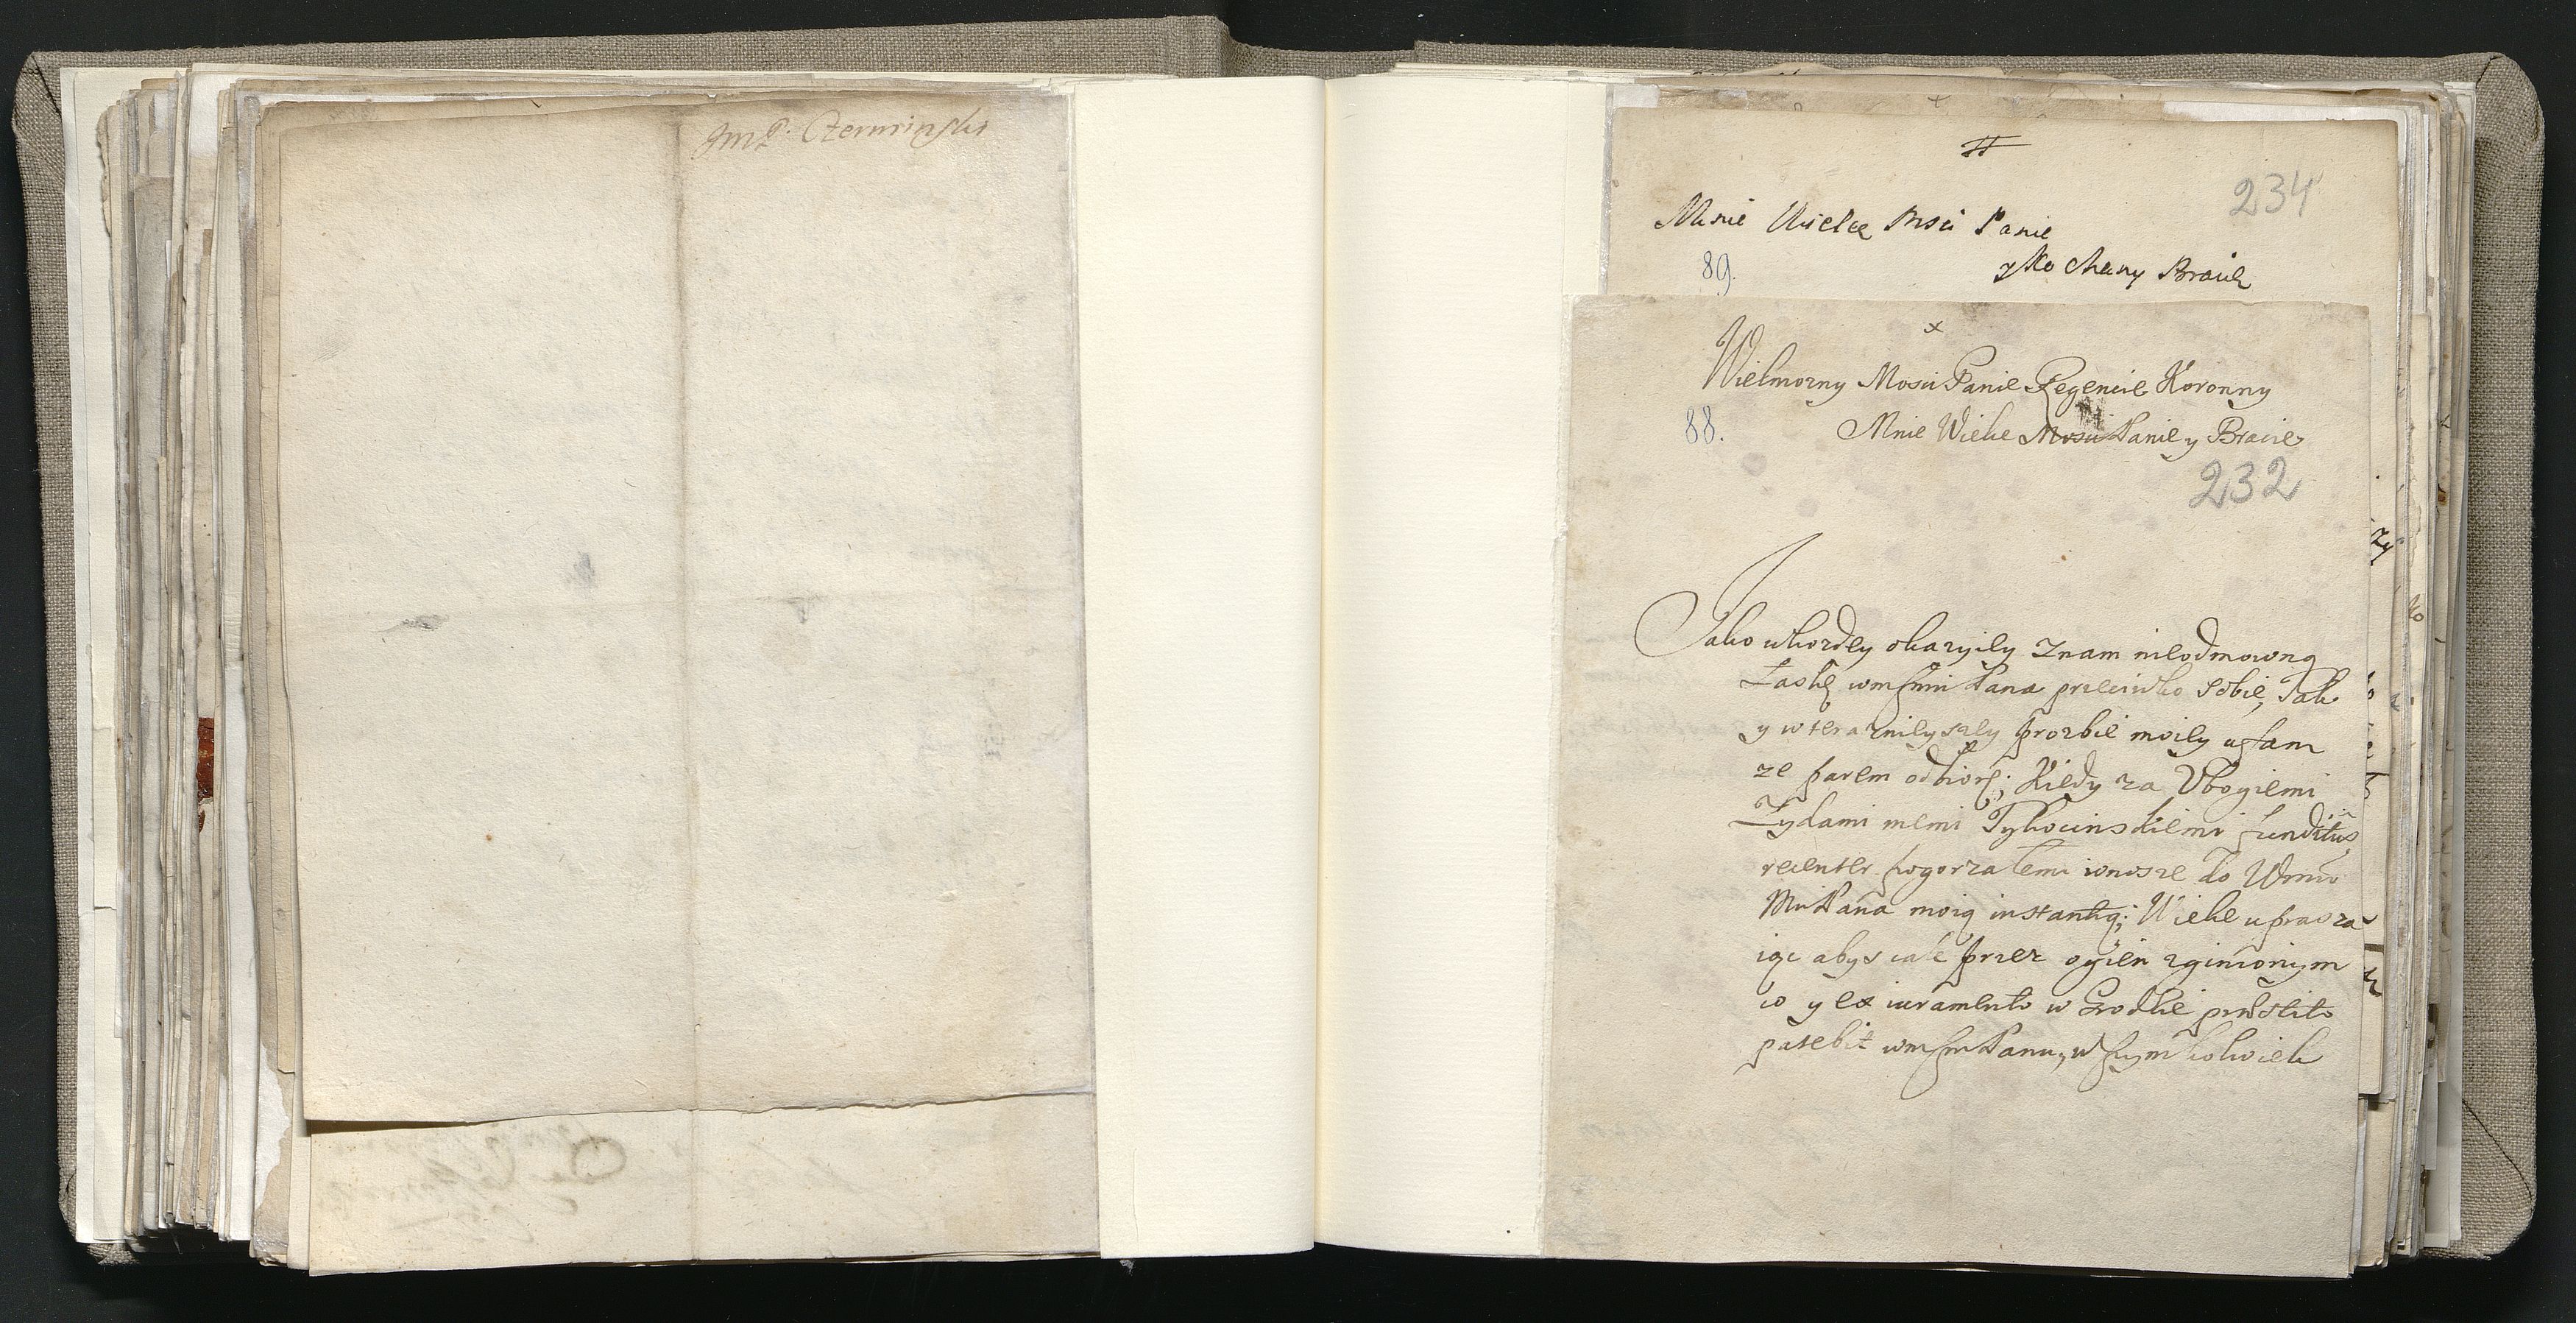 JmP. Czerminski
#
234
Mnie Wielce Msci Panie
y Kochany Bracie
89.
x
Wielmozny Mosci Panie Regencie Koronny
88.
Mnie Wielce Mosci Panie y Bracie
232
Jako w kozdey okazyiey znam nieodmowną
Łaskę wmsm Pana przeciwko sobie, Tak
y w teraznieyszey prozbie moiey ufam
ze parem odbiorę; Kiedy za Vbogiemi
Zydami memi Tykocinskiemi funditus
recenter pogorzałemi wnosze do Wmm
Mu Pana moią instantią; Wielce uprasza
iąc abys cale przez ogien zginionym
co y ex iuramento w Grodzie præstito
patebit wmsm Panu, w czym kolwiek